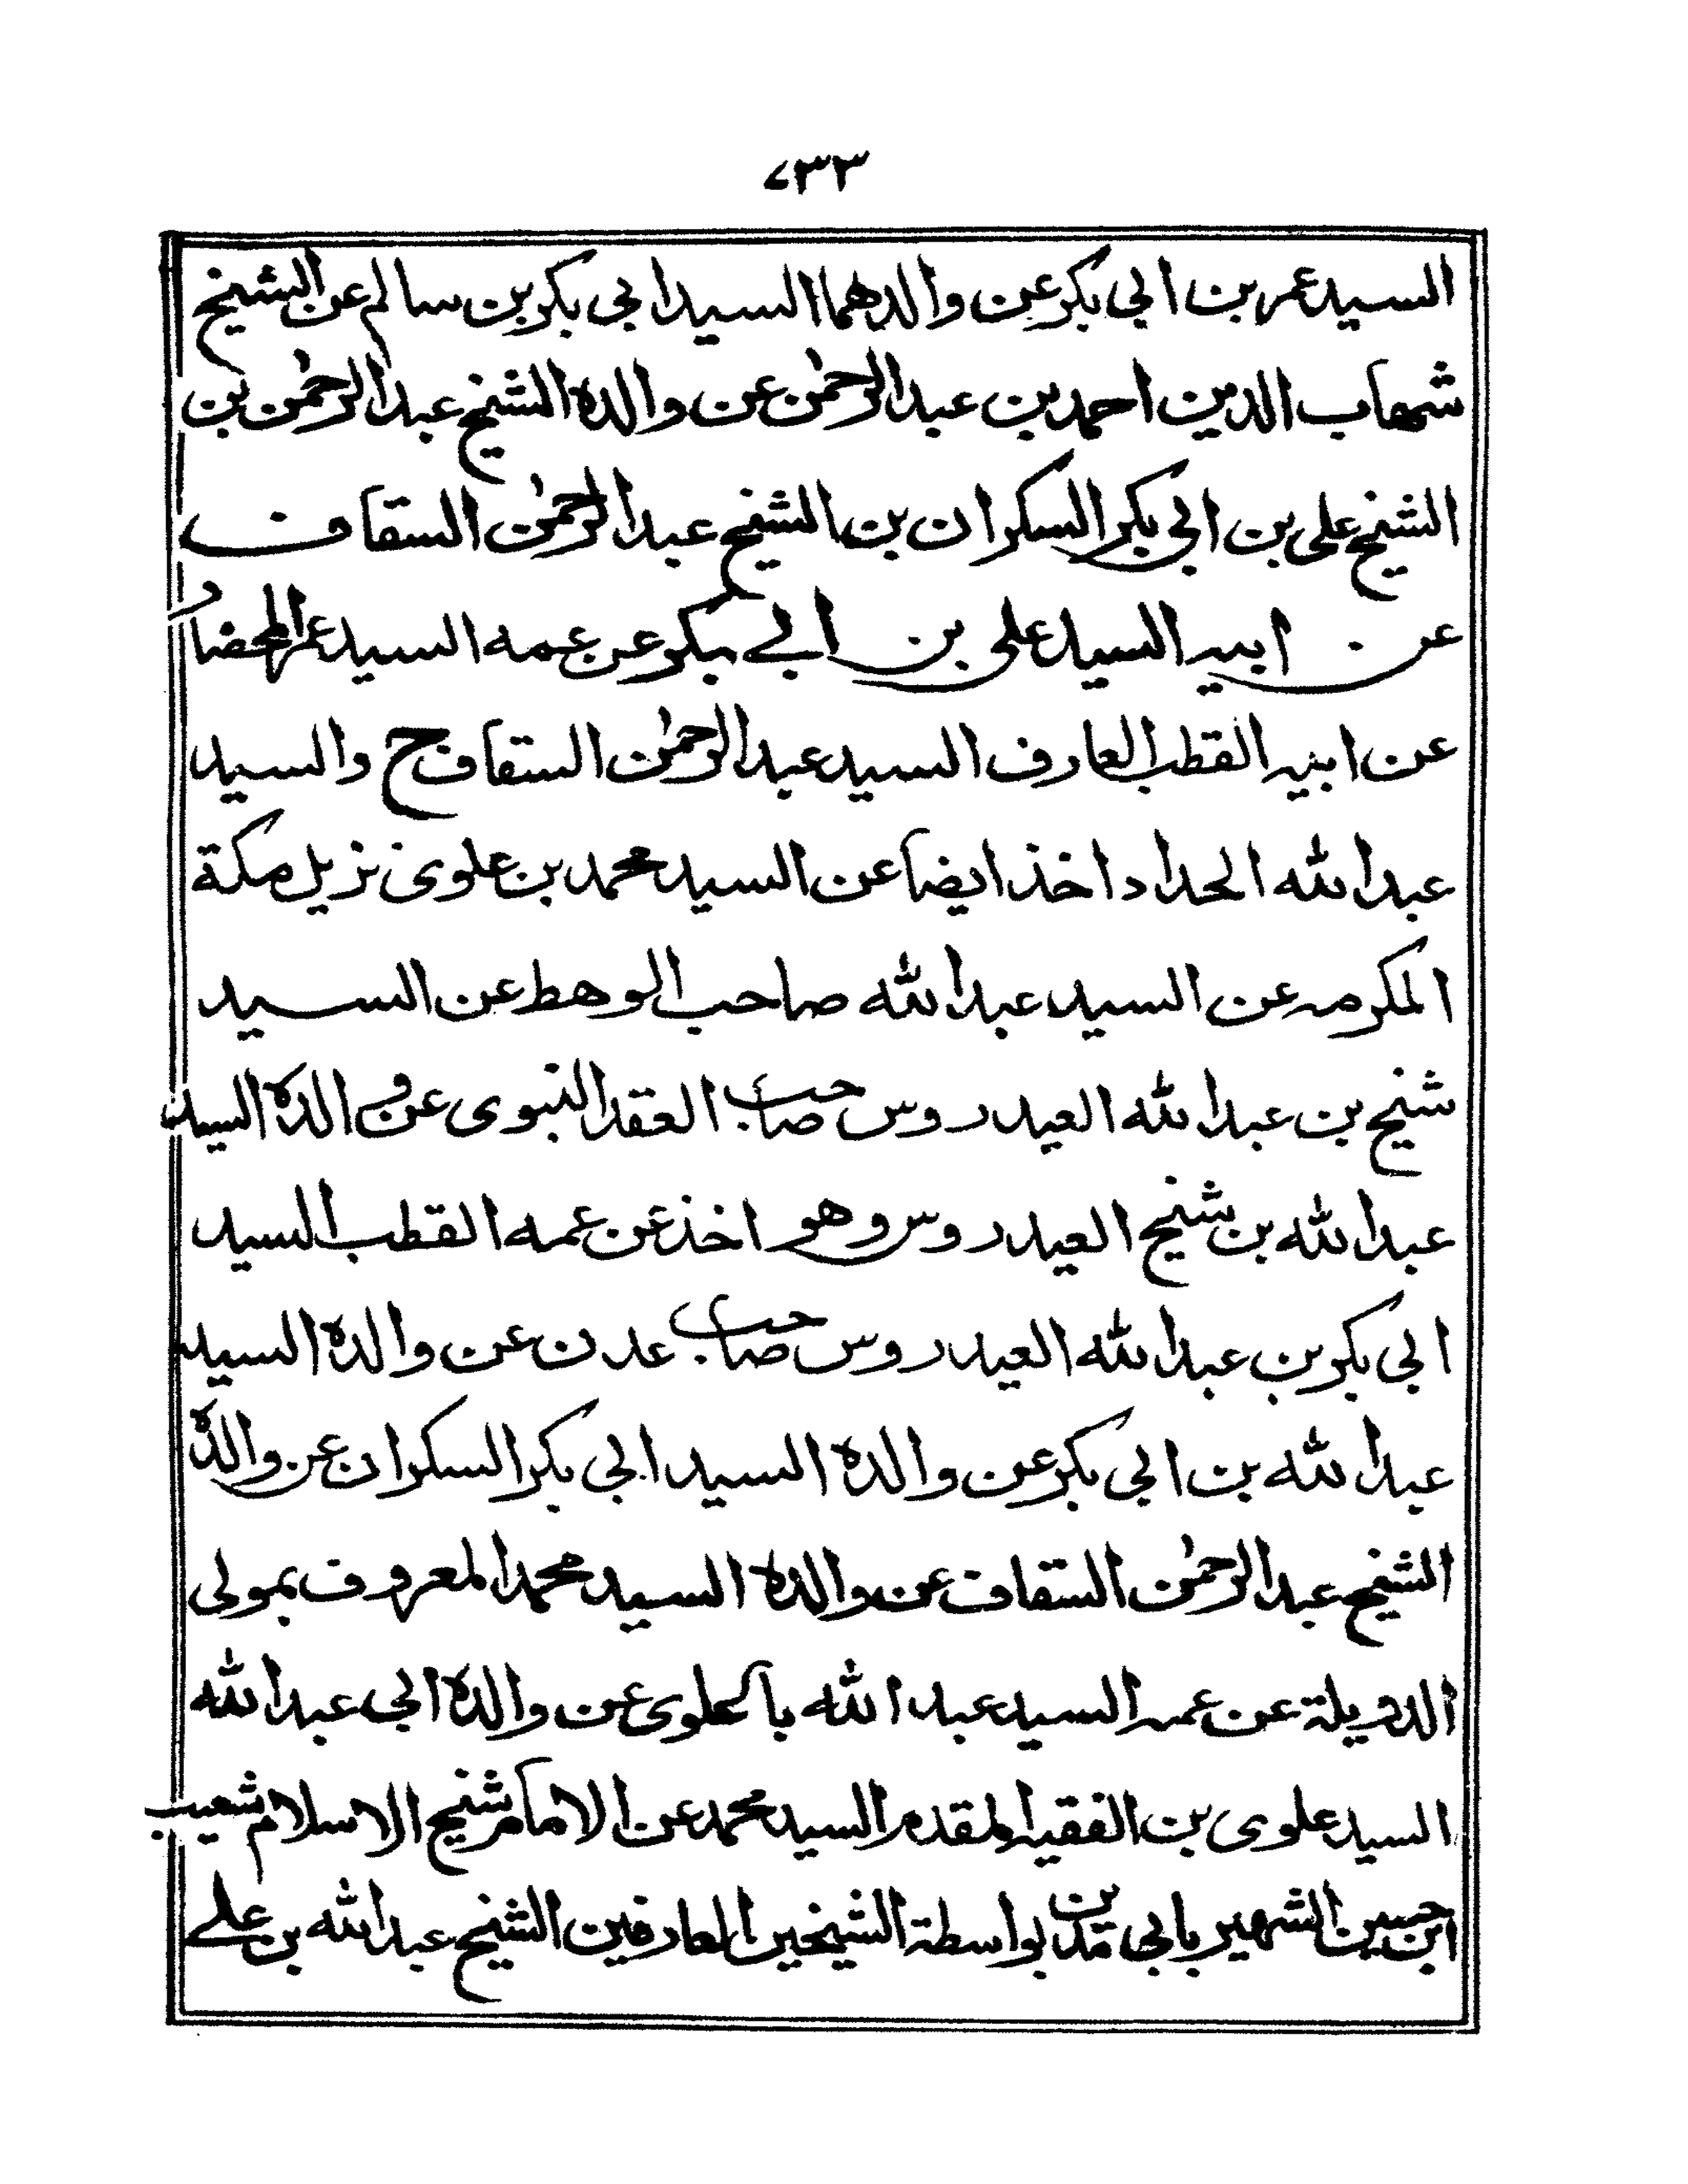 ٧٣٣
السيد عمر بن ابي بكر عن والدهما السيد ابي بكر بن سالم عن الشيخ
شهاب الدين احمد بن عبد الرحمٰن عن والده الشيخ عبد الرحمٰن بن
الشيخ علي بن ابي بكر السكران بن الشيخ عبد الرحمٰن السقاف
عن ابيه السيد علي بن ابي بكر عن عمه السيد عمر المحضار
عن ابيه القطب العارف السيد عبد الرحمٰن السقاف ح والسيد
عبد الله الحداد اخذ ايضا عن السيد محمد بن علوى نزيل مكة
المكرمه عن السيد عبد الله صاحب الوهط عن السيد
شيخ بن عبد الله العيدروس صاحب العقد النبوى عن والده السيد
عبد الله بن شيخ العيدروس وهو اخذ عن عمه القطب السيد
ابي بكر بن عبد الله العيدروس صاحب عدن عن والده السيد
عبد الله بن ابي بكر عن والده السيد ابي بكر السكران عن والده
الشيخ عبد الرحمٰن السقاف عن والده السيد محمد المعروف بمولى
الدويلة عن عمه السيد عبد الله باعلوى عن والده ابي عبد الله
السيد علوى بن الفقيه المقدم السيد محمد عن الامام شيخ الاسلام شعيب
ابن حسين الشهير بابي مدين بواسطة الشيخين العارفين الشيخ عبد الله بن علي